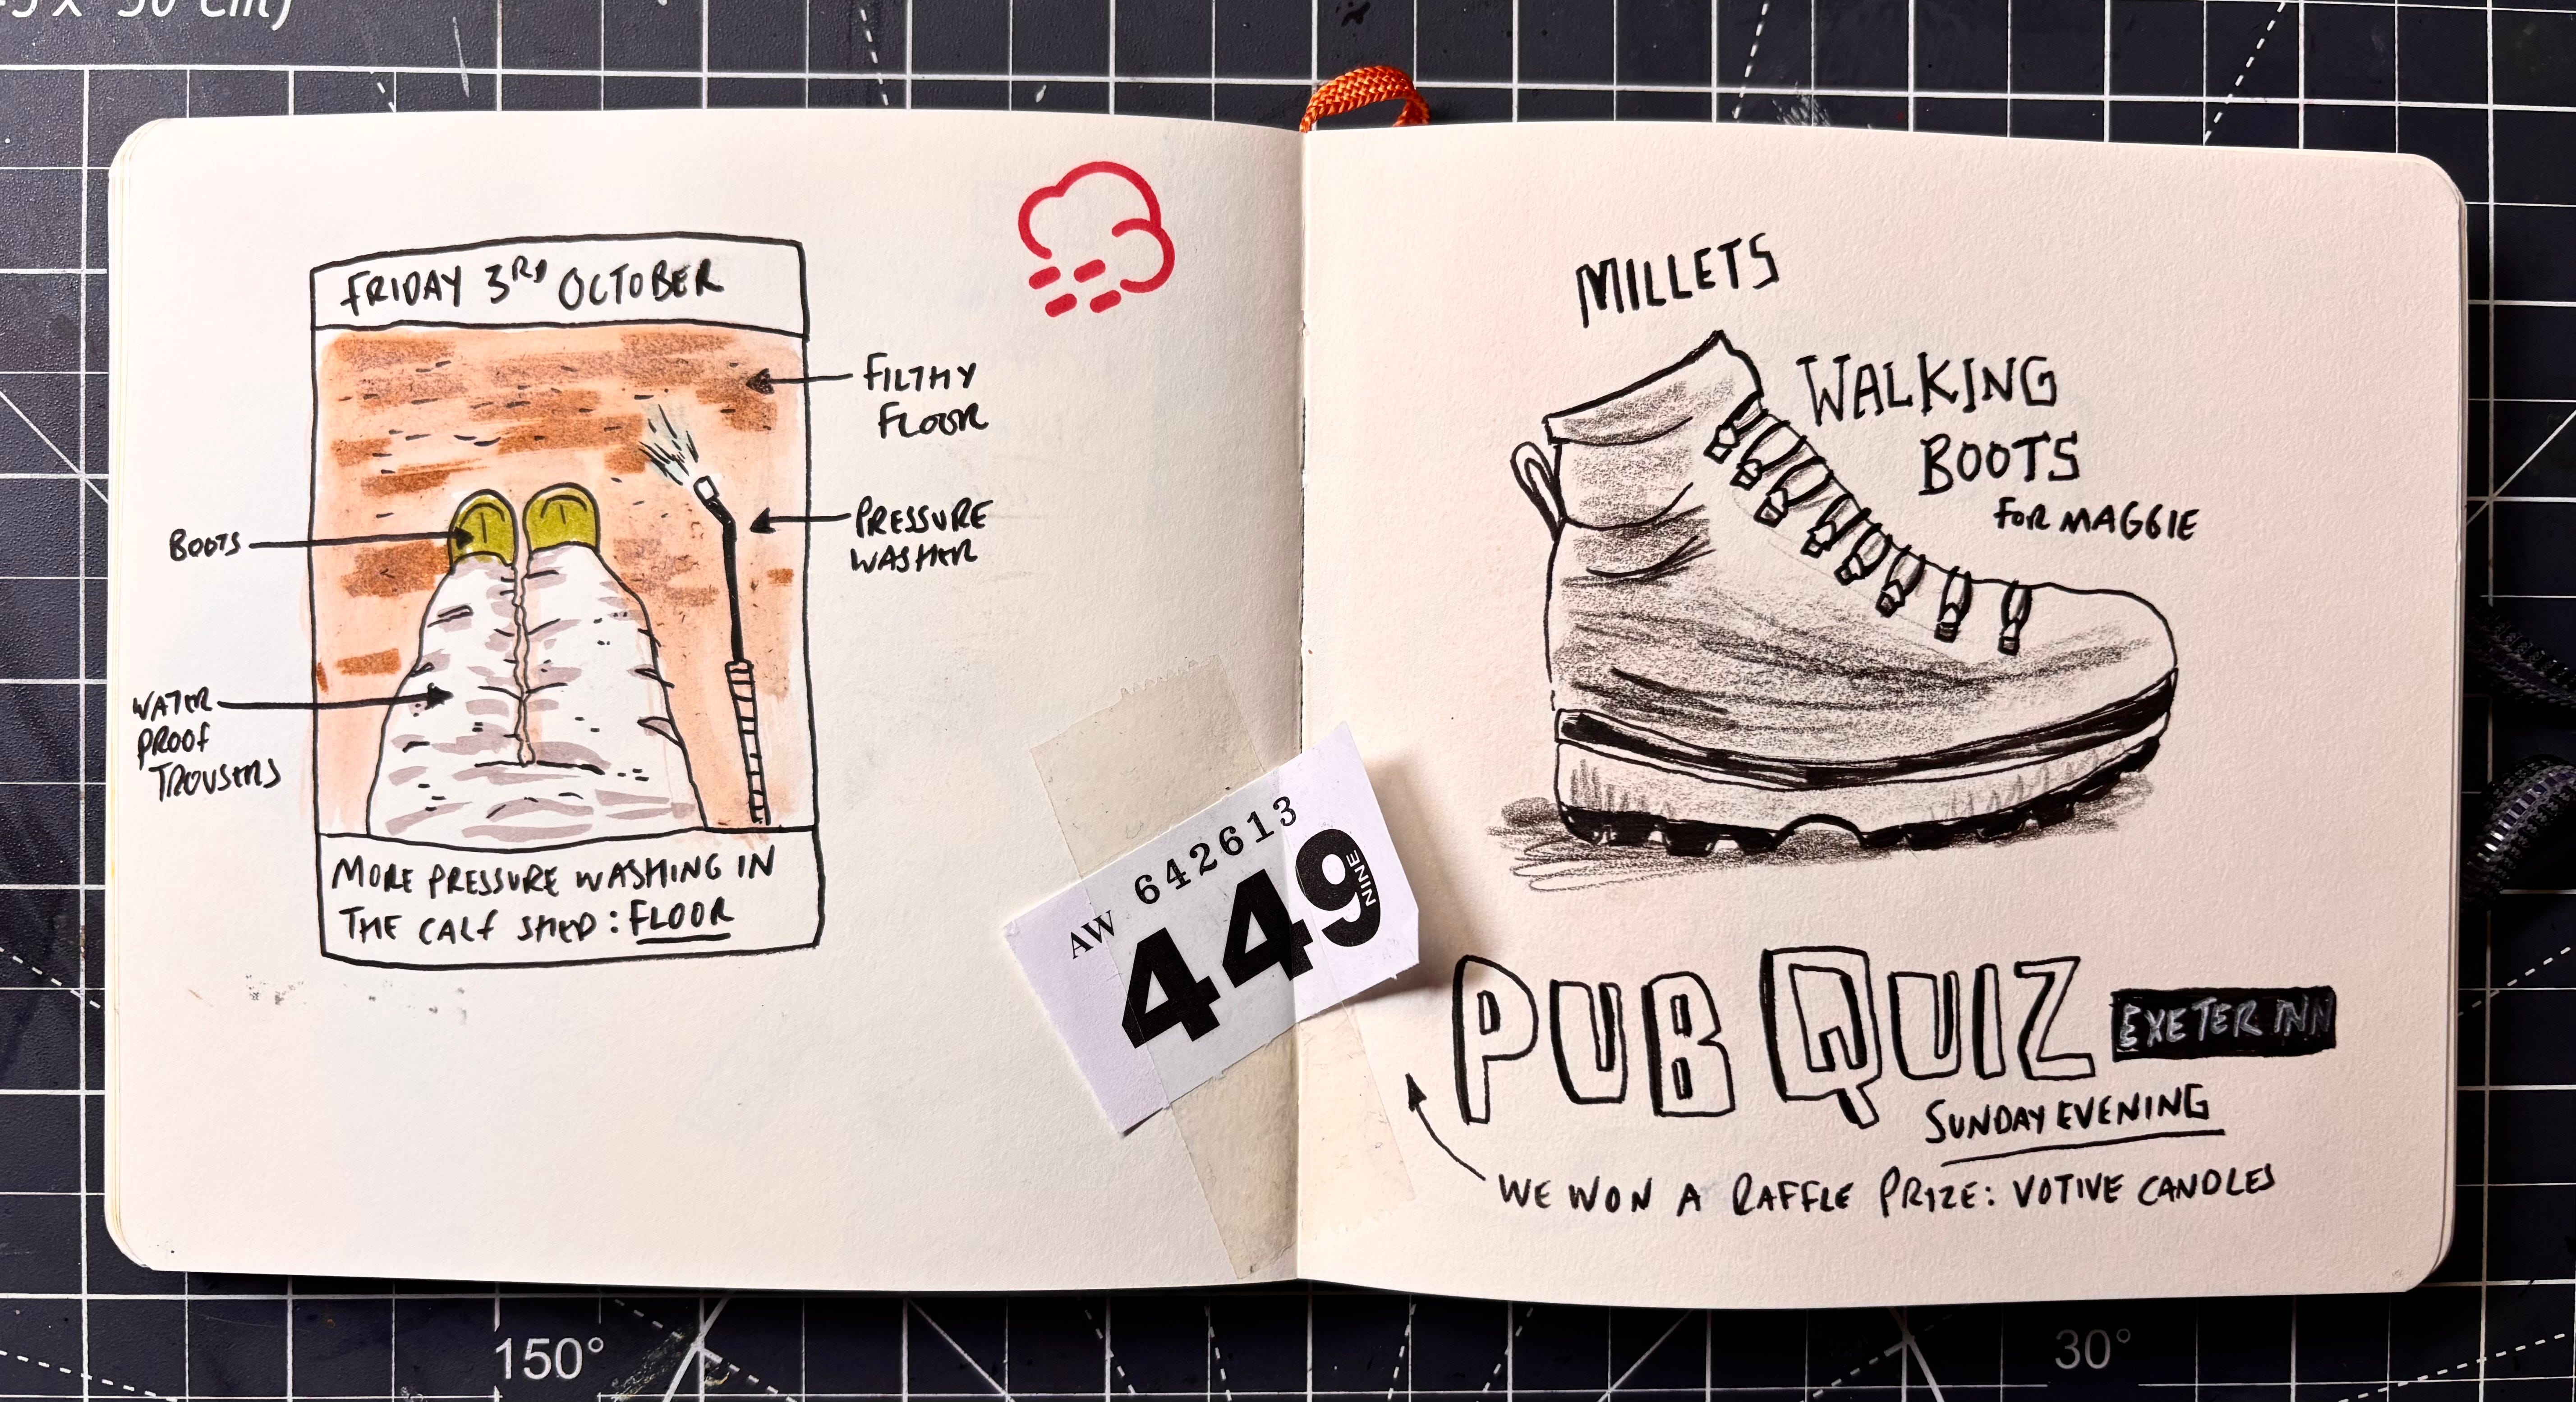 FRIDAY 3RD OCTOBER
FILTHY
FLOOR
PRESSURE
WASHER
BOOTS
WATER
PROOF
TROUSERS
MORE PRESSURE WASHING IN
THE CALF SHED: FLOOR
AW 642613
449
NINE
MILLETS
WALKING
BOOTS
FOR MAGGIE
PUB QUIZ
EXETER INN
SUNDAY EVENING
WE WON A RAFFLE PRIZE: VOTIVE CANDLES
150°
30°